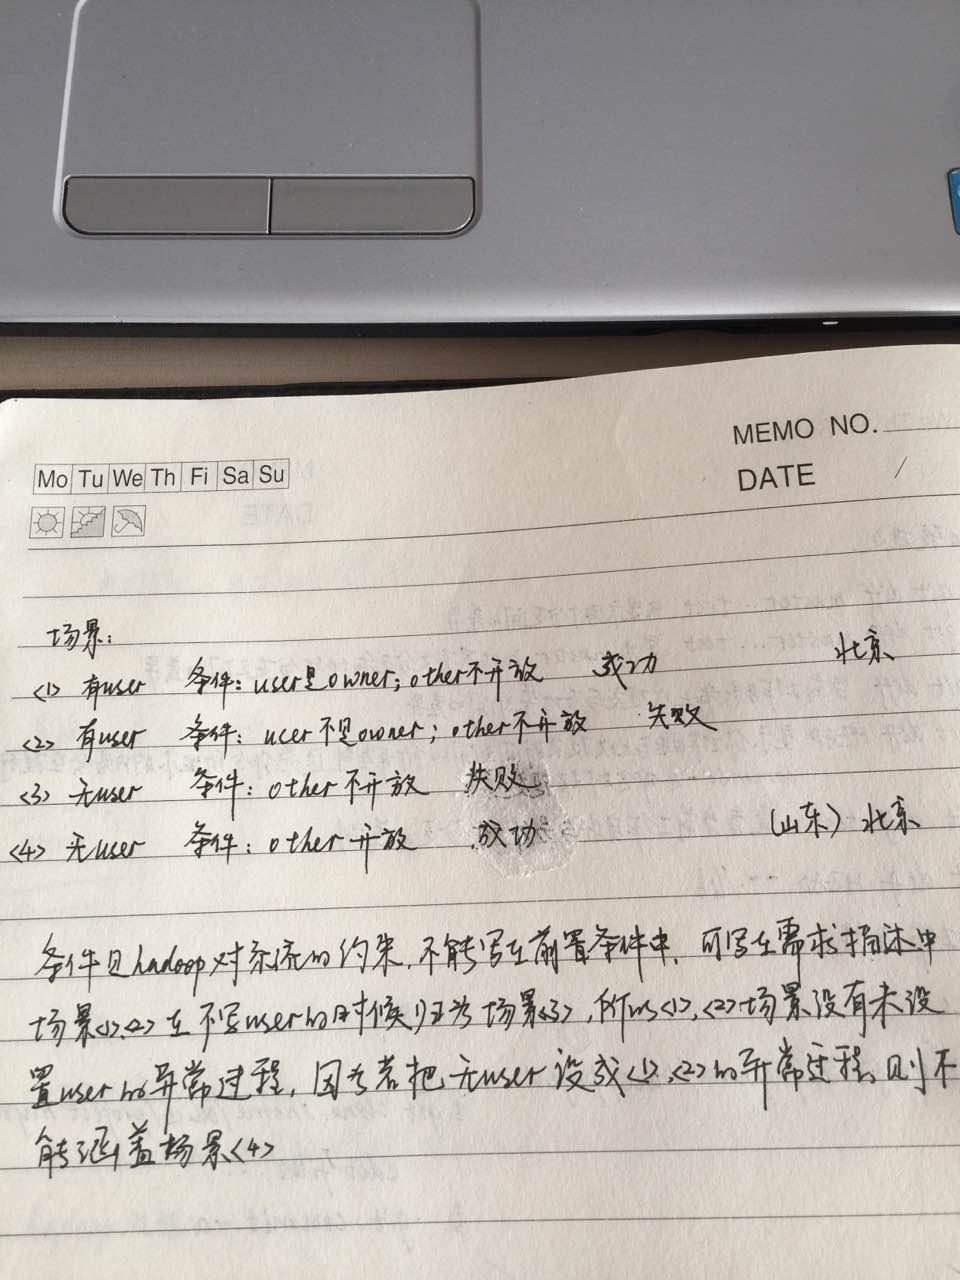 MEMO NO.
Mo Tu We Th Fi Sa Su
DATE /
场景:
<1> 有user 条件: user是owner; other不开放 成功 北京
<2> 有user 条件: user不是owner; other不开放 失败
<3> 无user 条件: other不开放 失败
<4> 无user 条件: other开放 成功 (山东) 北京
条件是hadoop对系统的约束,不能写在前置条件中,可写在需求描述中
场景<1>,<2>在不写user的时候归为场景<3>,所以<1>,<2>场景没有未设
置user的异常过程,因为若把无user设成<1>,<2>的异常过程,则不
能涵盖场景<4>